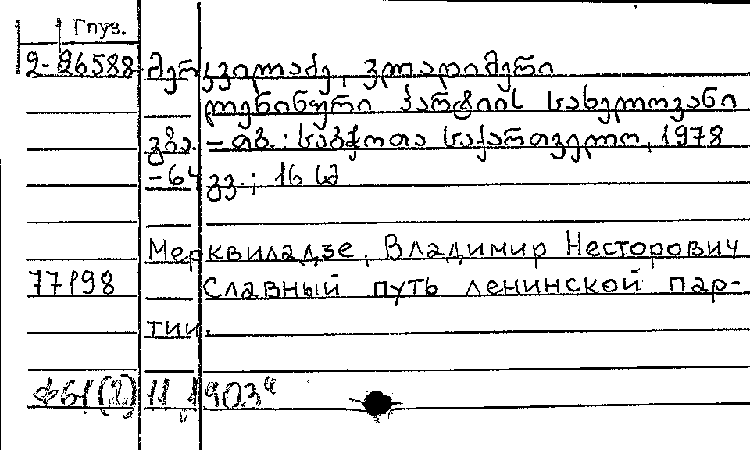 Груз.
2-26588 მერკვილაძე, ვლადიმერი
ლენინური პარტიის სახელოვანი
გზა. – თბ.: საბჭოთა საქართველო, 1978
– 64 გვ.; 16 სმ
Мерквиладзе, Владимир Несторович
77198 Славный путь ленинской пар-
тии.
11 1903